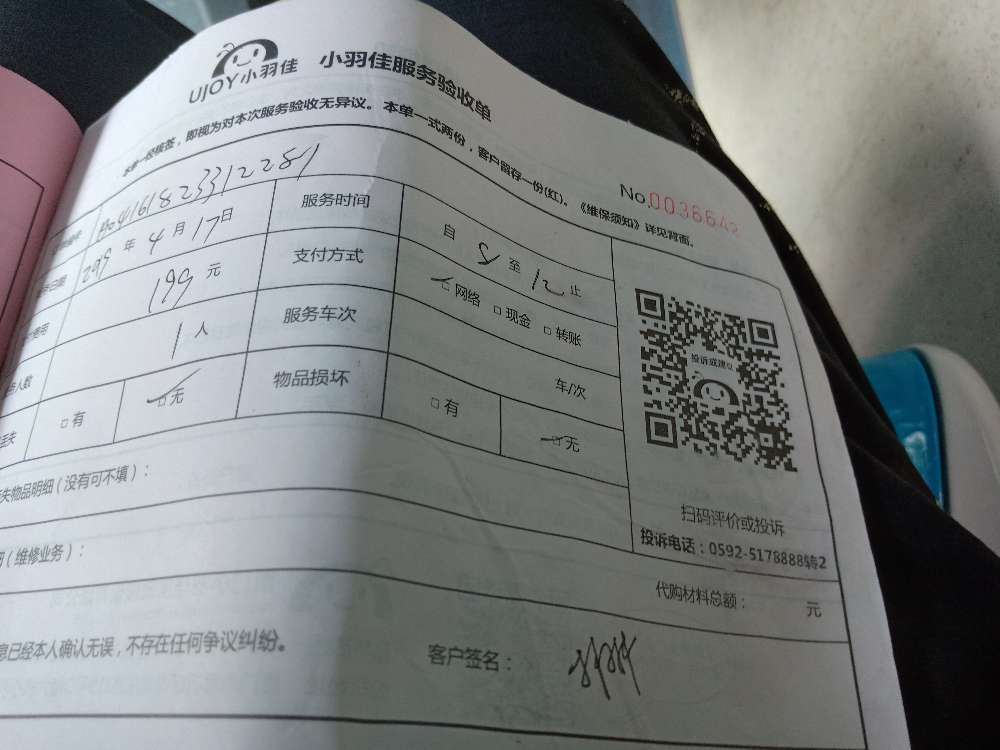 UJOY小羽佳 小羽佳服务验收单
本单一经核签，即视为对本次服务验收无异议。本单一式两份，客户留存一份(红)。《维保须知》详见背面。
No.0036642
416182331 2281 服务时间 自 8 至 12 止
年 4 月 17 日 支付方式 网络 □现金 □转账
199 元 服务车次 车/次
人数 1 人 物品损坏 □有 □无
□有 □无
投诉或建议
扫码评价或投诉
投诉电话：0592-5178888转2
失物品明细（没有可不填）：
（维修业务）： 代购材料总额： 元
息已经本人确认无误，不存在任何争议纠纷。 客户签名：